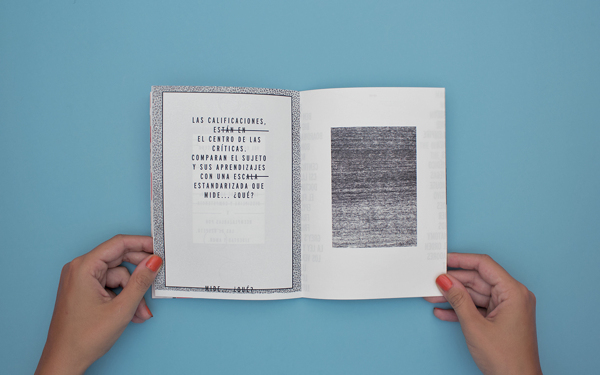 LAS CALIFICACIONES,
ESTÁN EN
EL CENTRO DE LAS
CRÍTICAS.
COMPARAN EL SUJETO
Y SUS APRENDIZAJES
CON UNA ESCALA
ESTANDARIZADA QUE
MIDE... ¿QUÉ?
MIDE... ¿QUÉ?